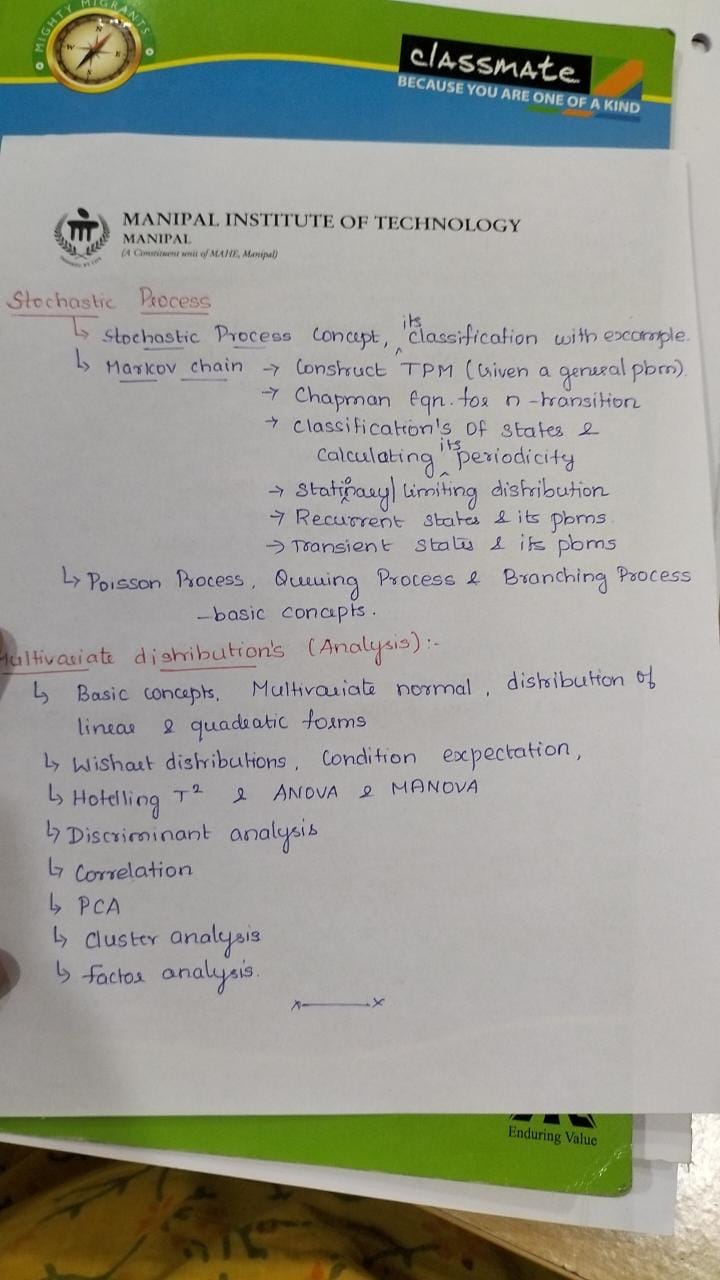 MIGHTY MIGRANTS
N
W E
S
classmate
BECAUSE YOU ARE ONE OF A KIND
MANIPAL INSTITUTE OF TECHNOLOGY
MANIPAL
(A Constituent unit of MAHE, Manipal)
Stochastic Process
↳ Stochastic Process concept, its classification with example.
↳ Markov chain → Construct TPM (Given a general pbm).
→ Chapman Eqn. for n-transition
→ Classification's of states & calculating its periodicity
→ Stationary/limiting distribution
→ Recurrent states & its pbms.
→ Transient states & its pbms
↳ Poisson Process, Queuing Process & Branching Process
- basic concepts.
Multivariate distribution's (Analysis) :-
↳ Basic concepts, Multivariate normal, distribution of
linear & quadratic forms
↳ Wishart distributions, Condition expectation,
↳ Hotelling T² & ANOVA & MANOVA
↳ Discriminant analysis
↳ Correlation
↳ PCA
↳ Cluster analysis
↳ factor analysis.
x———x
Enduring Value